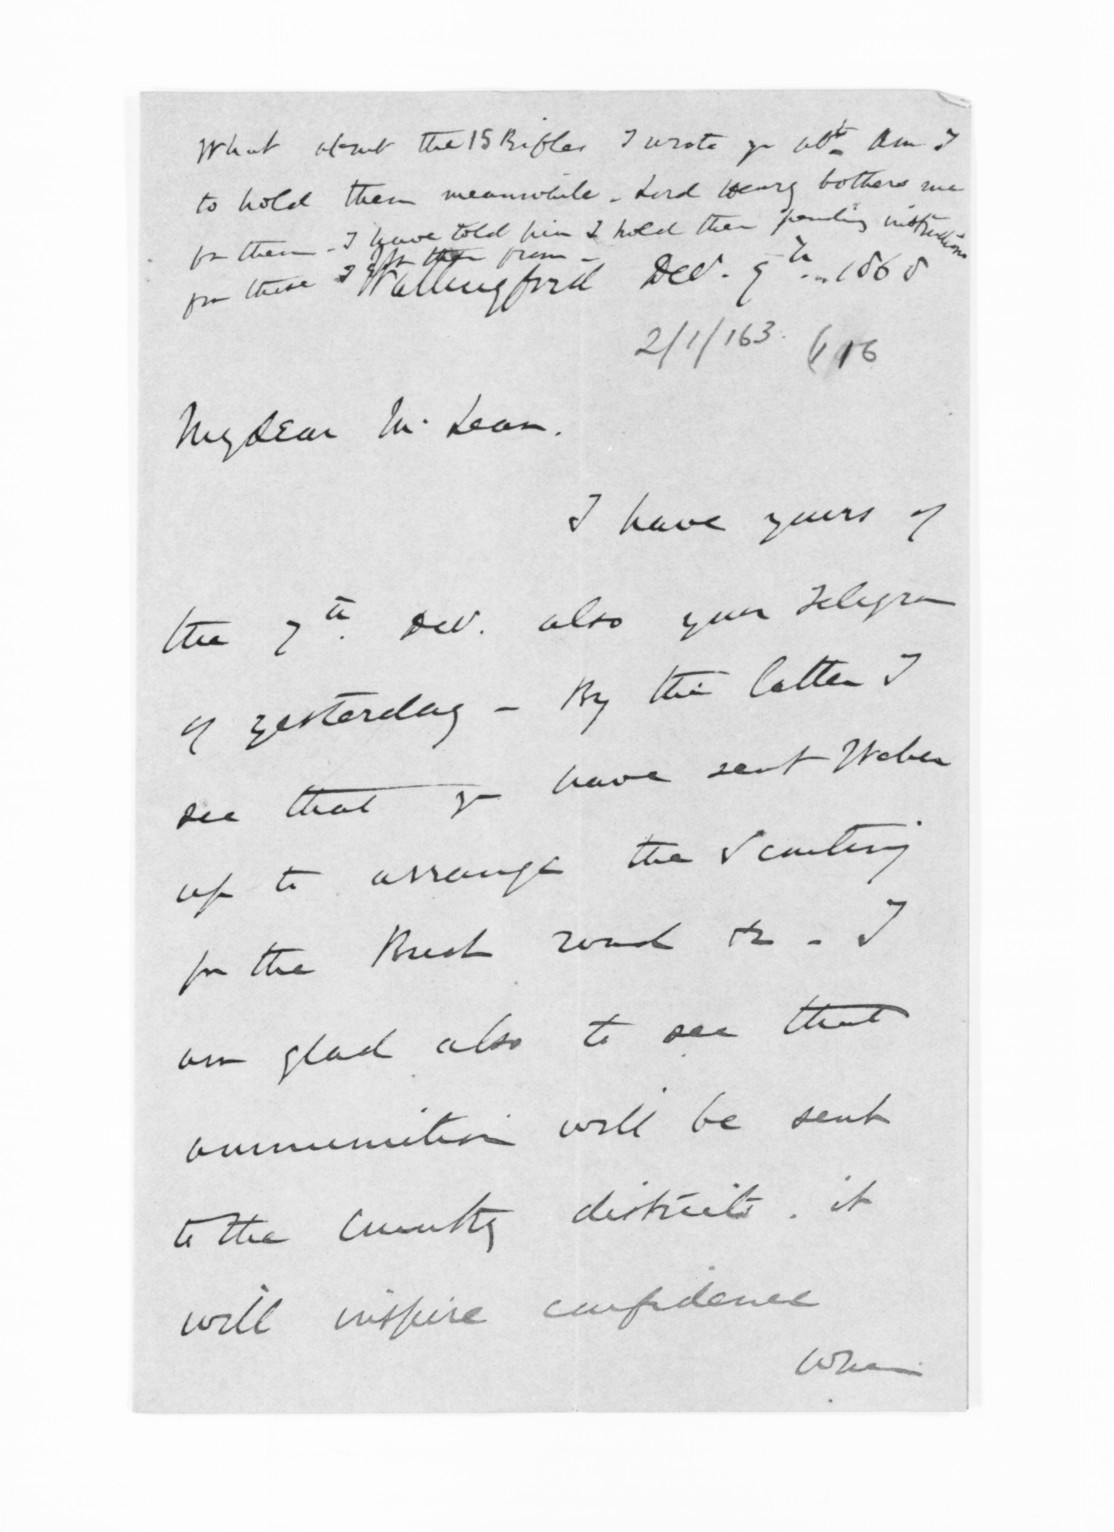 What about the 15 Rifles I wrote yr abt. Am I
to hold them meanwhile - Lord Henry bothers me
for them - I have told him I hold them pending instructions
for these I from -
Wallingford Dec. 9th. 1868
2/1/163.
My dear McLean.
I have yours of
the 7th. Dec. also your Telegram
of yesterday - By the latter I
see that yr have sent Weber
up to arrange the Scouting
for the Bush road &c - I
am glad also to see that
ammunition will be sent
to the Country districts. it
will inspire confidence
When